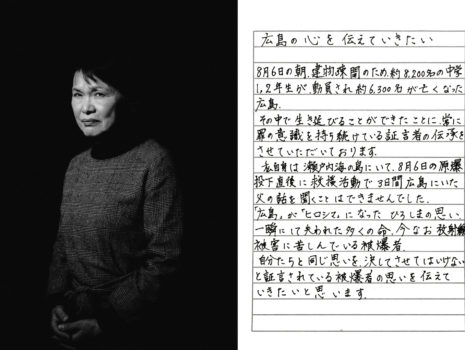 広島の心を伝えていきたい
8月6日の朝、建物疎開のため、約8,200名の中学
1,2年生が、動員され約6,300名が亡くなった
広島。
その中で生き延びることができたことに、常に
罪の意識を持ち続けている証言者の伝承を
させていただいております。
私自身は瀬戸内海の島にいて、8月6日の原爆
投下直後に救援活動で3日間広島にいた
父の話を聞くことはできませんでした。
「広島」が「ヒロシマ」になった ひろしまの思い、
一瞬にして失われた多くの命、今なお放射線
被害に苦しんでいる被爆者。
自分たちと同じ思いを、決してさせてはいけない
と証言されている被爆者の思いを伝えて
いきたいと思います。